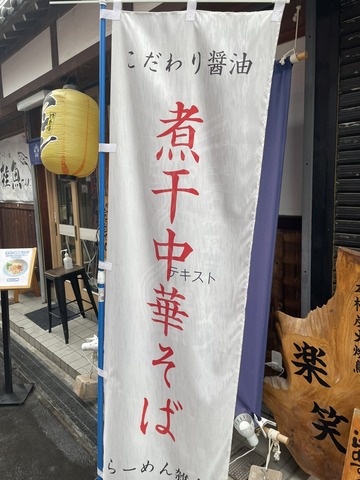 こだわり醤油
煮干中華そば
テキスト
らーめん
楽笑